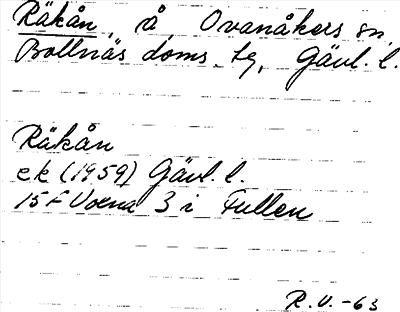 Räkån, å, Ovanåkers sn,
Bollnäs doms. tg, Gävl. l.
Räkån
ek (1959) Gävl. l.
15F Voxna 3 i Fullen
R.V. -63